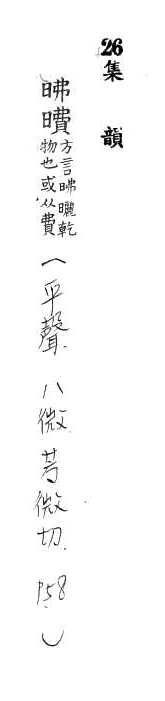 26集韻
昲䊧方言昲曬乾
物也或从費
(平聲.八微.芳微切.P58)